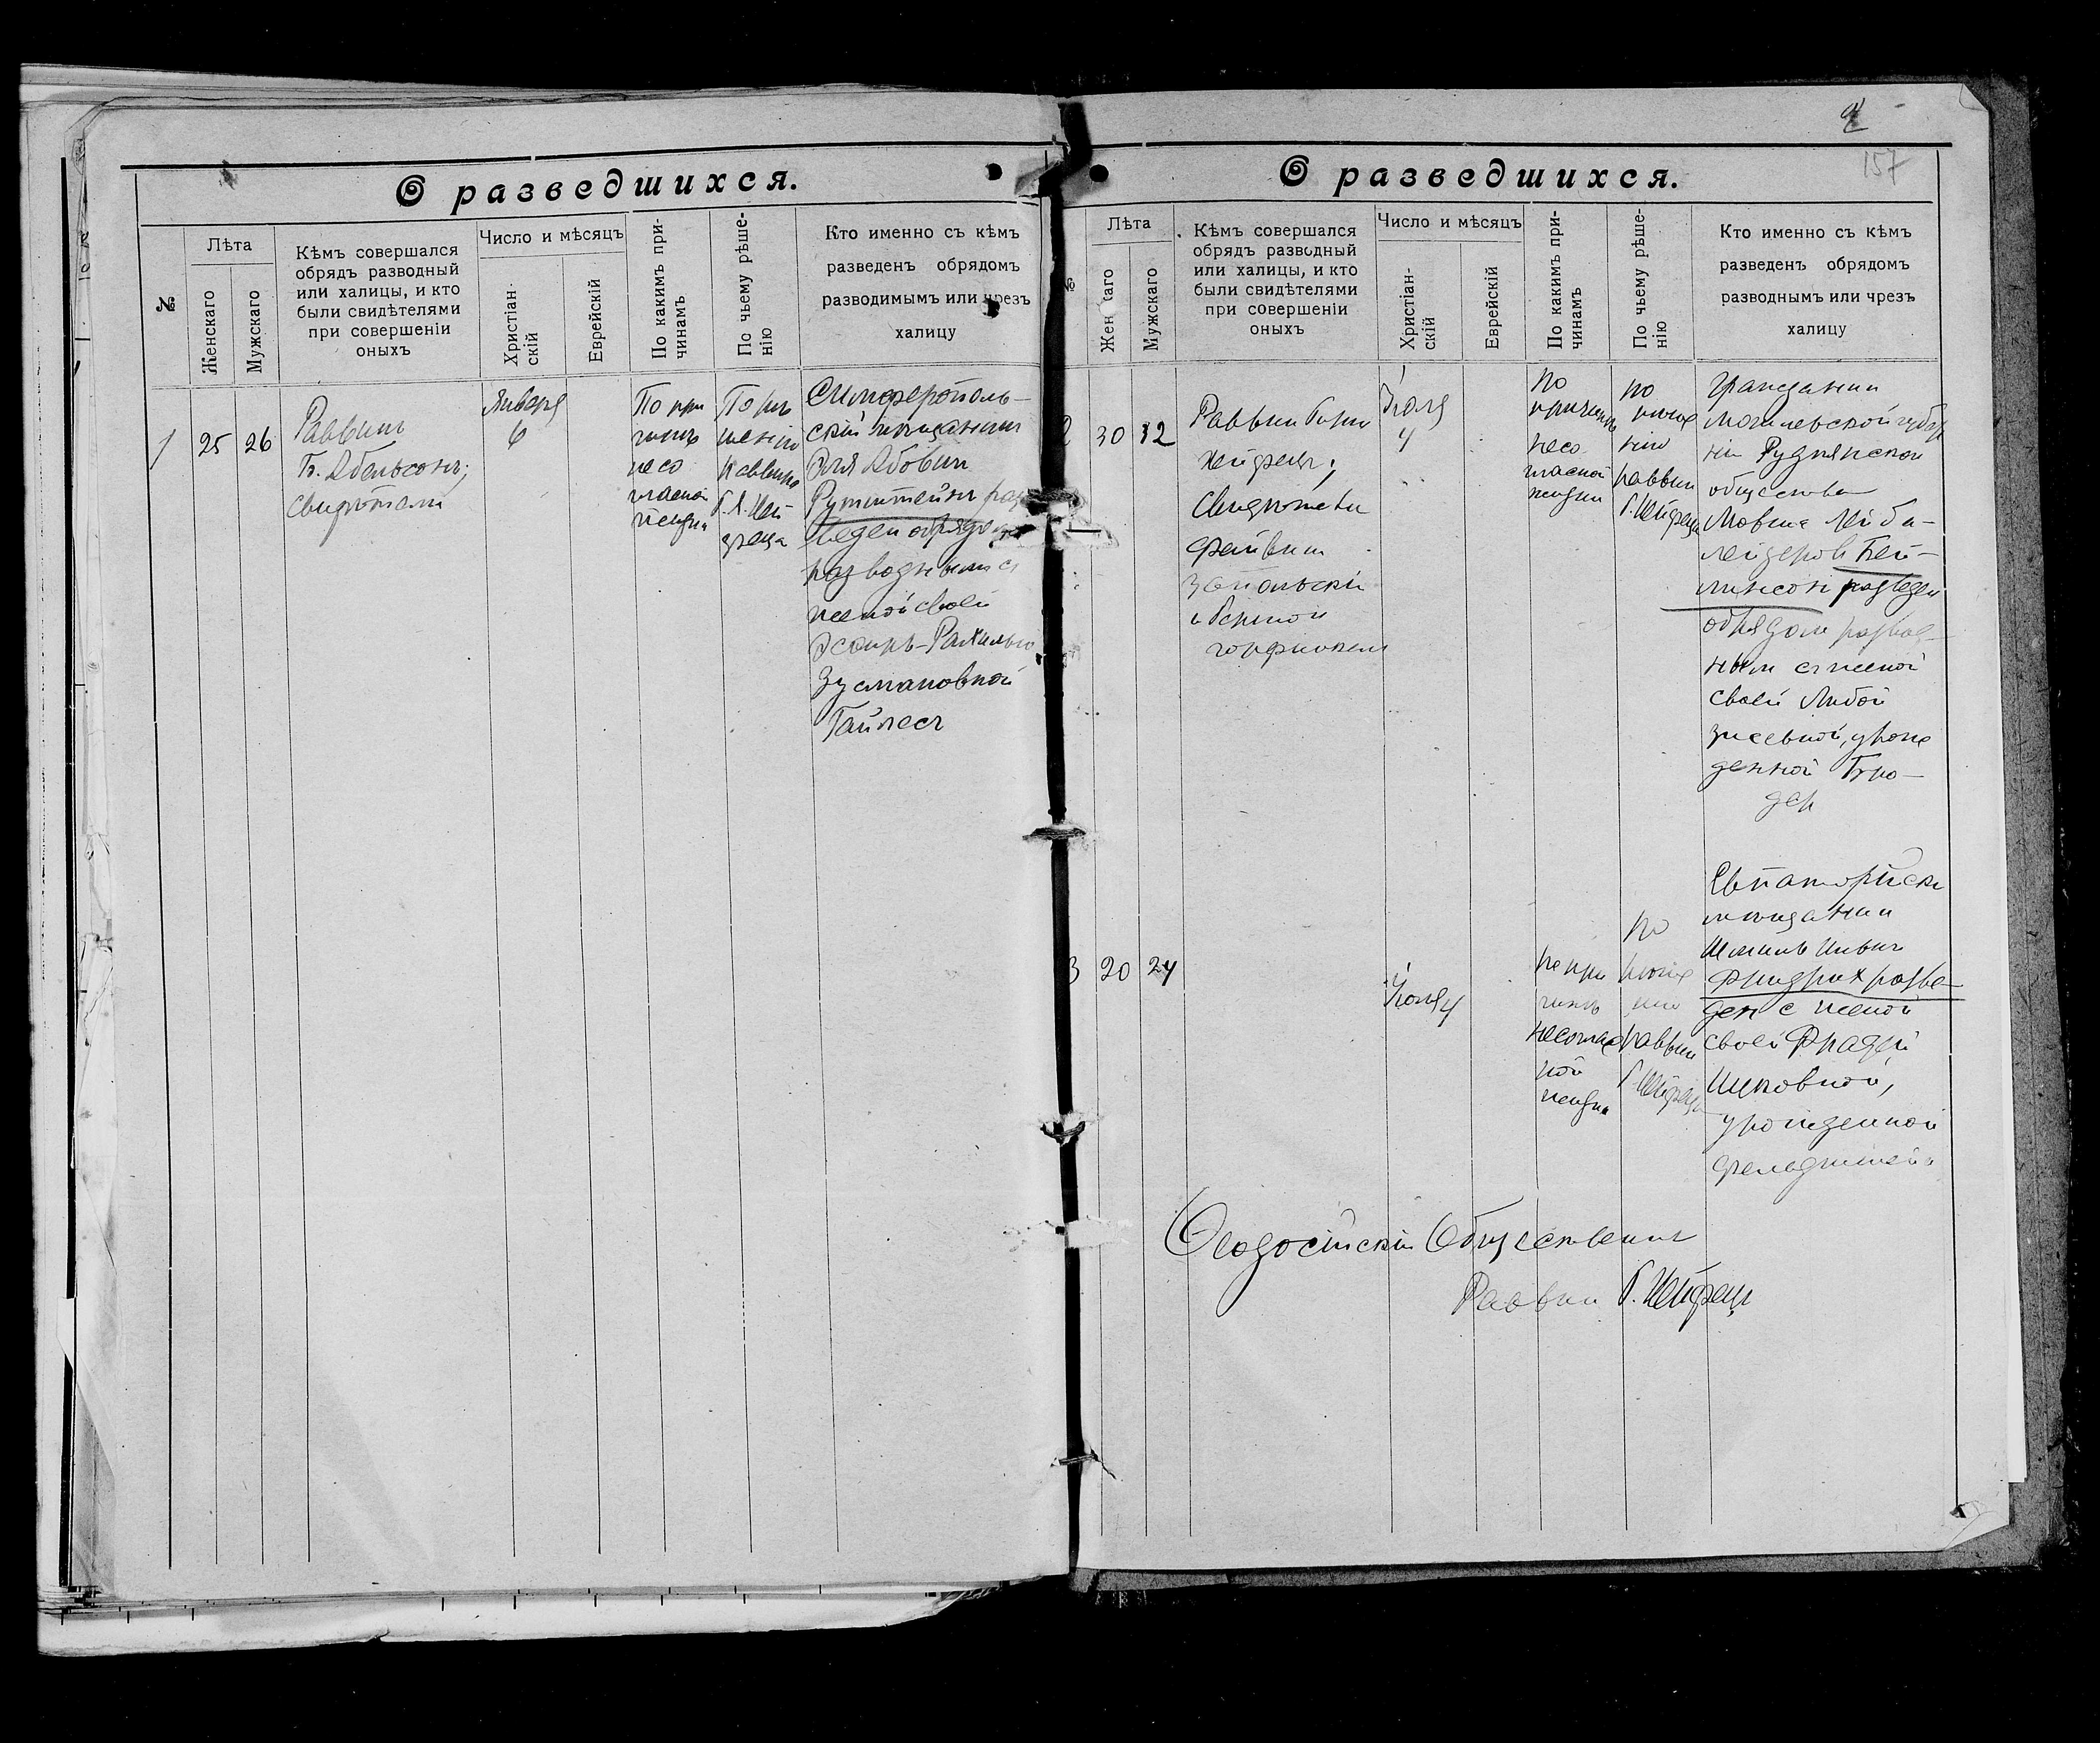 О разведшихся.
№
Лѣта
Женскаго
Мужскаго
Кѣмъ совершался
обрядъ разводный
или халицы, и кто
были свидѣтелями
при совершеніи
оныхъ
Число и мѣсяцъ
Христіан-
скій
Еврейскій
По какимъ при-
чинамъ
По чьему рѣше-
нію
Кто именно съ кѣмъ
разведенъ обрядомъ
разводимымъ или чрезъ
халицу
1
25
26
Раввинъ
Б. Абельсонъ;
свидѣтели
Января
6
По при
чинѣ
несо
гласной
жизни
По рѣ
шенію
Раввина
Симферополь-
скій
Эля Абович
Рутштейнъ раз
веден обрядом
разводным с
женой своей
Эсфирь-Рахилью
Зусмановной
Гайлесъ
О разведшихся.
157
№
Лѣта
Женскаго
Мужскаго
Кѣмъ совершался
обрядъ разводный
или халицы, и кто
были свидѣтелями
при совершеніи
оныхъ
Число и мѣсяцъ
Христіан-
скій
Еврейскій
По какимъ при-
чинамъ
По чьему рѣше-
нію
Кто именно съ кѣмъ
разведенъ обрядомъ
разводнымъ или чрезъ
халицу
2
30
32
Раввин
свидѣтели
Файвиш
и
4
по
причинѣ
несо
гласной
жизни
по
рѣше
нію
раввин
Гражданин
Могилевской губер
ніи Руднянской
общества
Мовша Лейба-
Лейзеров Бей-
линсон разведен
обрядом развод
ным с женой
своей Любой
урож
денной Бро-
дер
3
20
24
4
по при
чинѣ
несоглас
ной
жизни
по
рѣше
нію
раввин
Евпаторійскі
Фридрих разве-
ден с женой
своей Фрадей
Ицковной,
урожденной
Фельдштейн
Феодосійскій Общественный
Раввин